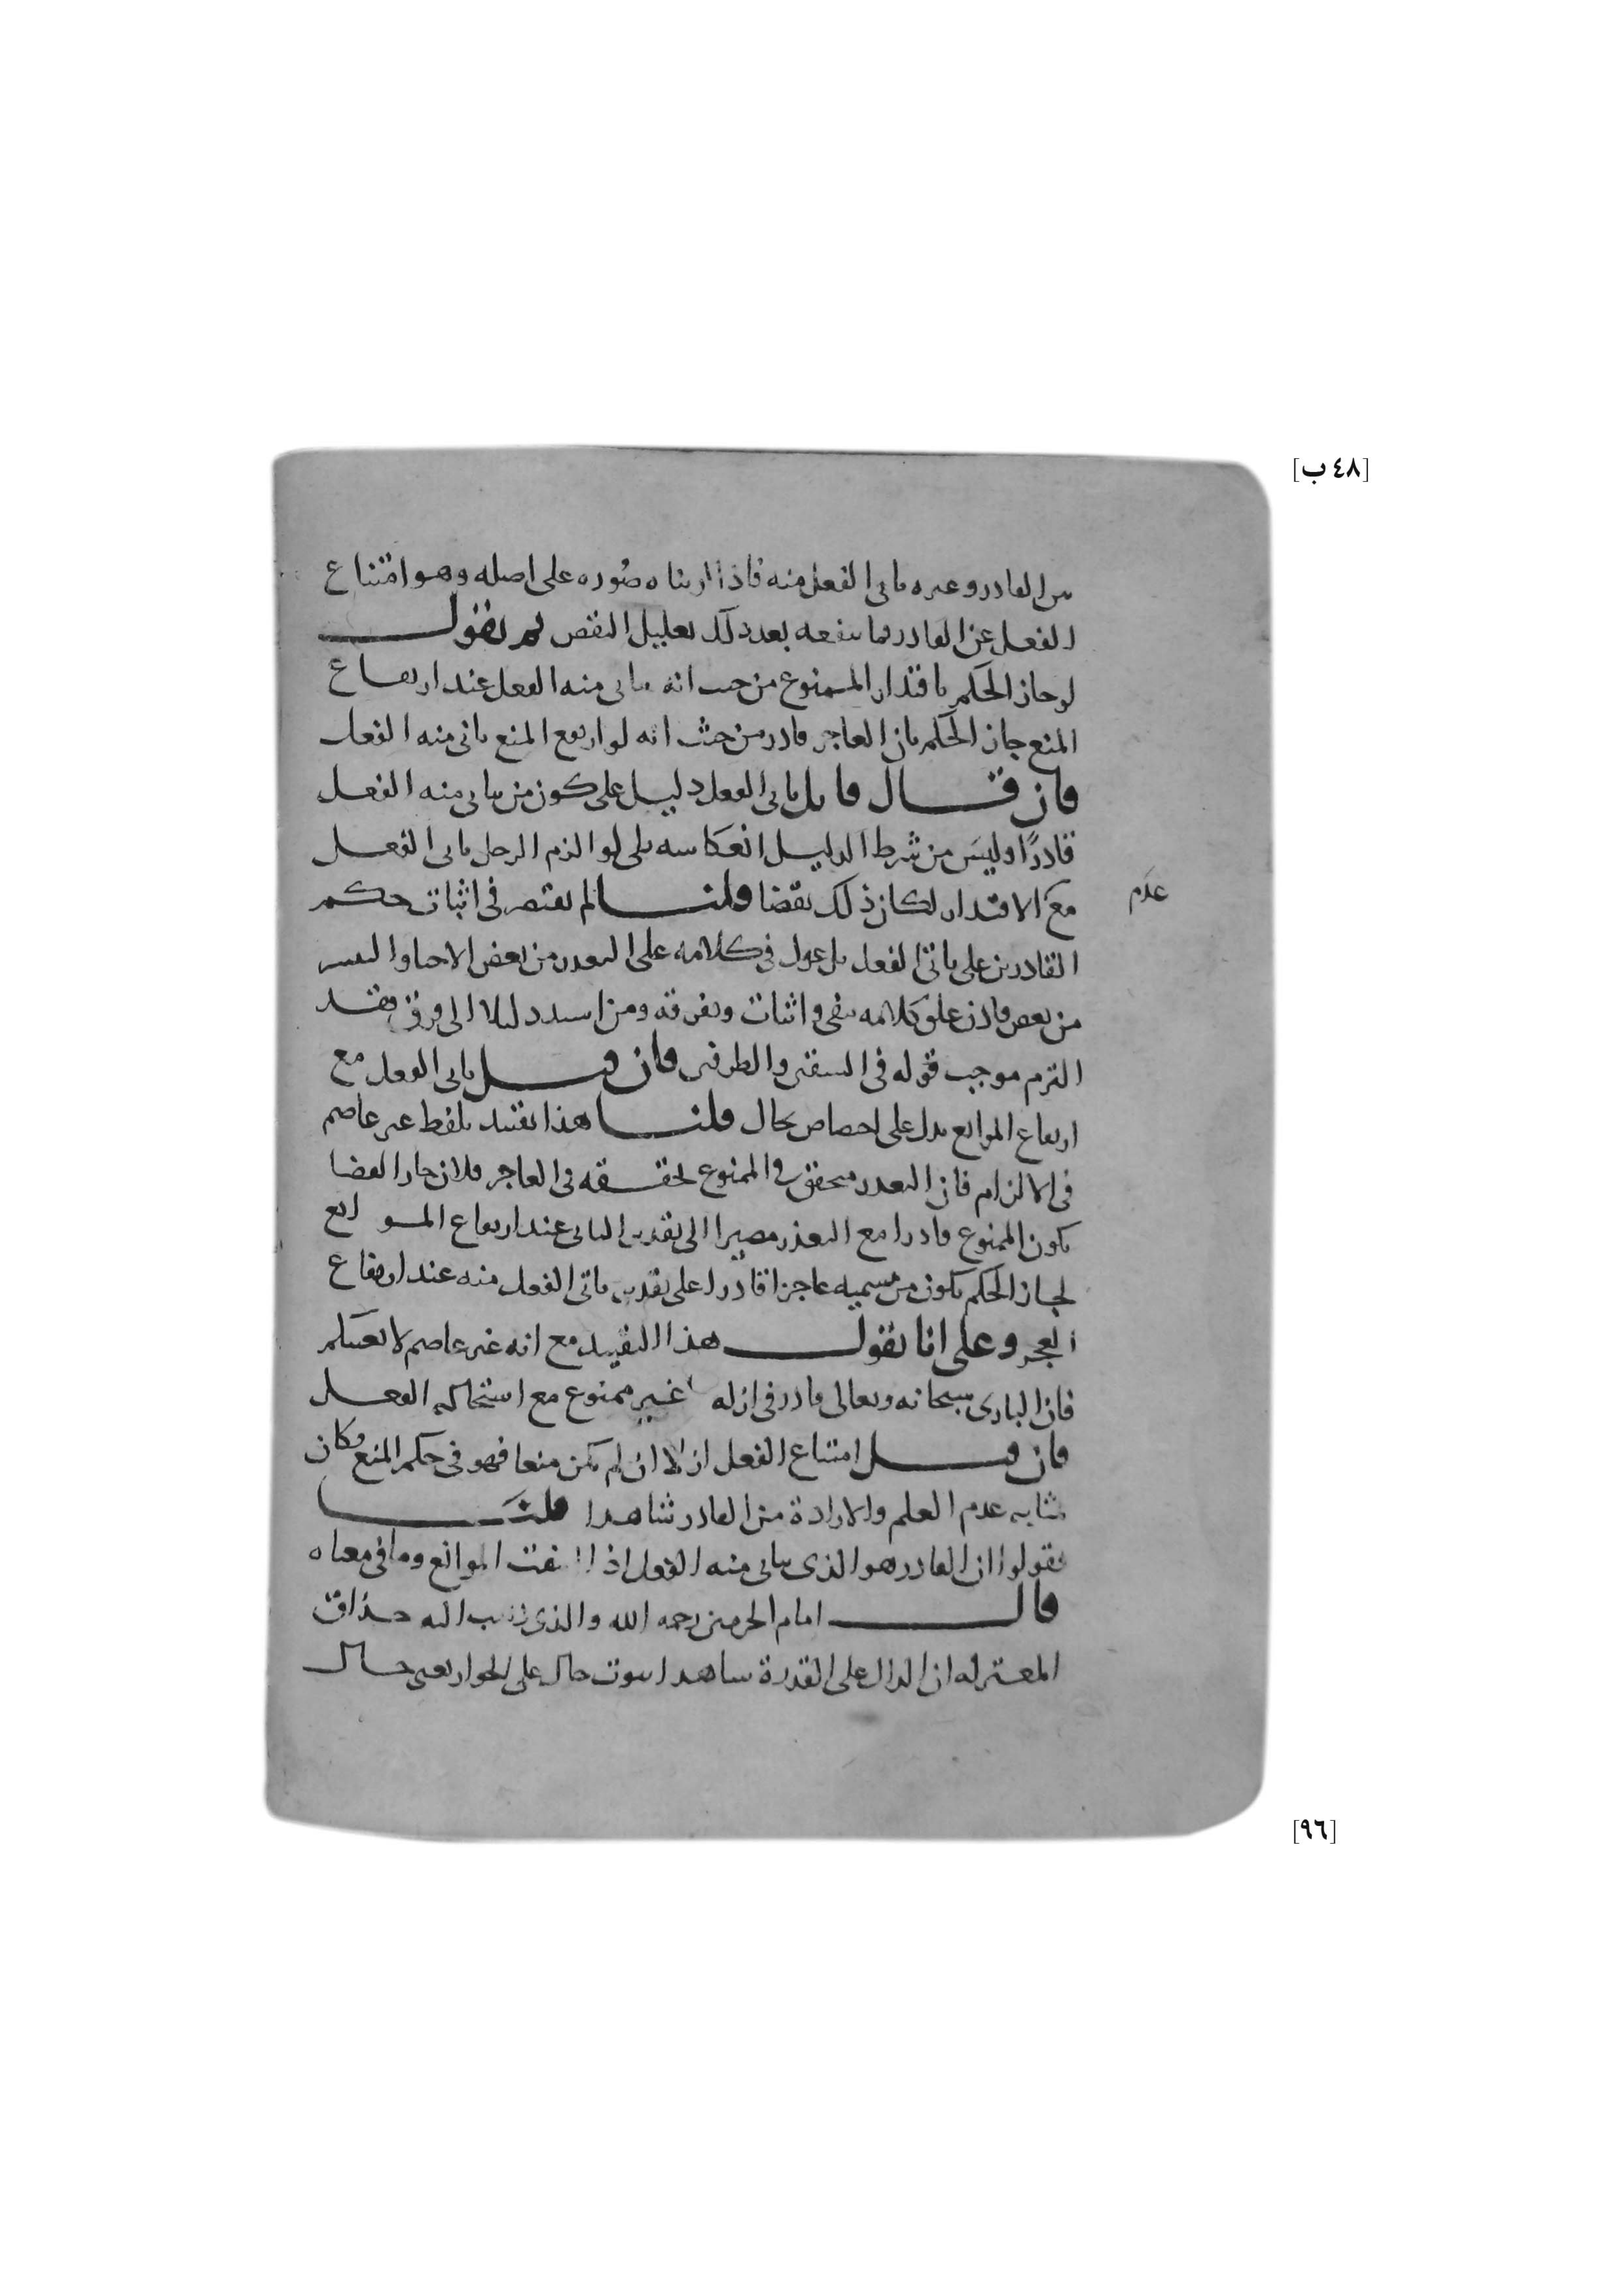 [٤٨ ب]
من القادر وغيره تأتي الفعل منه فاذا اريناه صوره على اصله وهو امتناع
الفعل عن القادر فما ينفعه بعد ذلك تعليل النقص ثم نقول
لو جاز الحكم باقتدار الممنوع من حيث انه يتأتى منه الفعل عند ارتفاع
المنع جاز الحكم بان العاجز قادر من حيث انه لو ارتفع المنع تأتى منه الفعل
فان قال قايل تأتي الفعل دليل على كون من يتأتى منه الفعل
قادرًا وليس من شرط الدليل انعكاسه بلى لو الزم الرجل تأتي الفعل
مع الاقتدار لكان ذلك نقضا قلنا لم يقتصر في اثبات حكم
عدم
القادرين على تأتي الفعل بل عول في كلامه على التعذر من بعض الاحيا والتيسر
من بعض فاذن علق كلامه بنفي واثبات وتفرقة ومن اسند دليلا الى فرق فقد
التزم موجب قوله في الشقين والطرفين فان قيل تأتي الفعل مع
ارتفاع الموانع يدل على اختصاص بحال قلنا هذا تقييد بلفظ غير عاصم
في الالزام فان التعذر متحقق في الممنوع تحققه في العاجز فلان جاز القضا
بكون الممنوع قادرا مع التعذر مصيرا الى تقدير التأتي عند ارتفاع الموانع
لجاز الحكم بكون من نسميه عاجزا قادرا على تقدير تأتي الفعل منه عند ارتفاع
العجز وعلى انا نقول هذا التقييد مع انه غير عاصم لا يعكم
فان البارى سبحانه وتعالى قادر في ازله غير ممنوع مع استحالة الفعل
فان قيل امتناع الفعل ازلا ان لم يكن منعا فهو في حكم المنع وكان
بمثابه عدم العلم والارادة من القادر شاهدا قلنا
فقولوا ان القادر هو الذي يتأتى منه الفعل اذا انتفت الموانع وما في معناه
قال امام الحرمين رحمه الله والذي ذهب اليه حذاق
المعتزله ان الدال على القدرة شاهدا ثبوت حال على الجواز بعين حال
[٩٦]